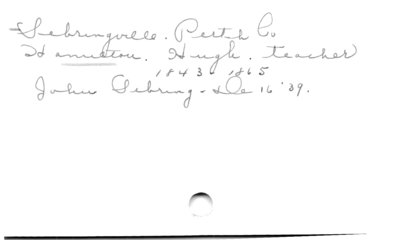 Sebringville. Perth Co
Hamilton. Hugh. teacher
1843 1865
John Sebring - De 16 '39.